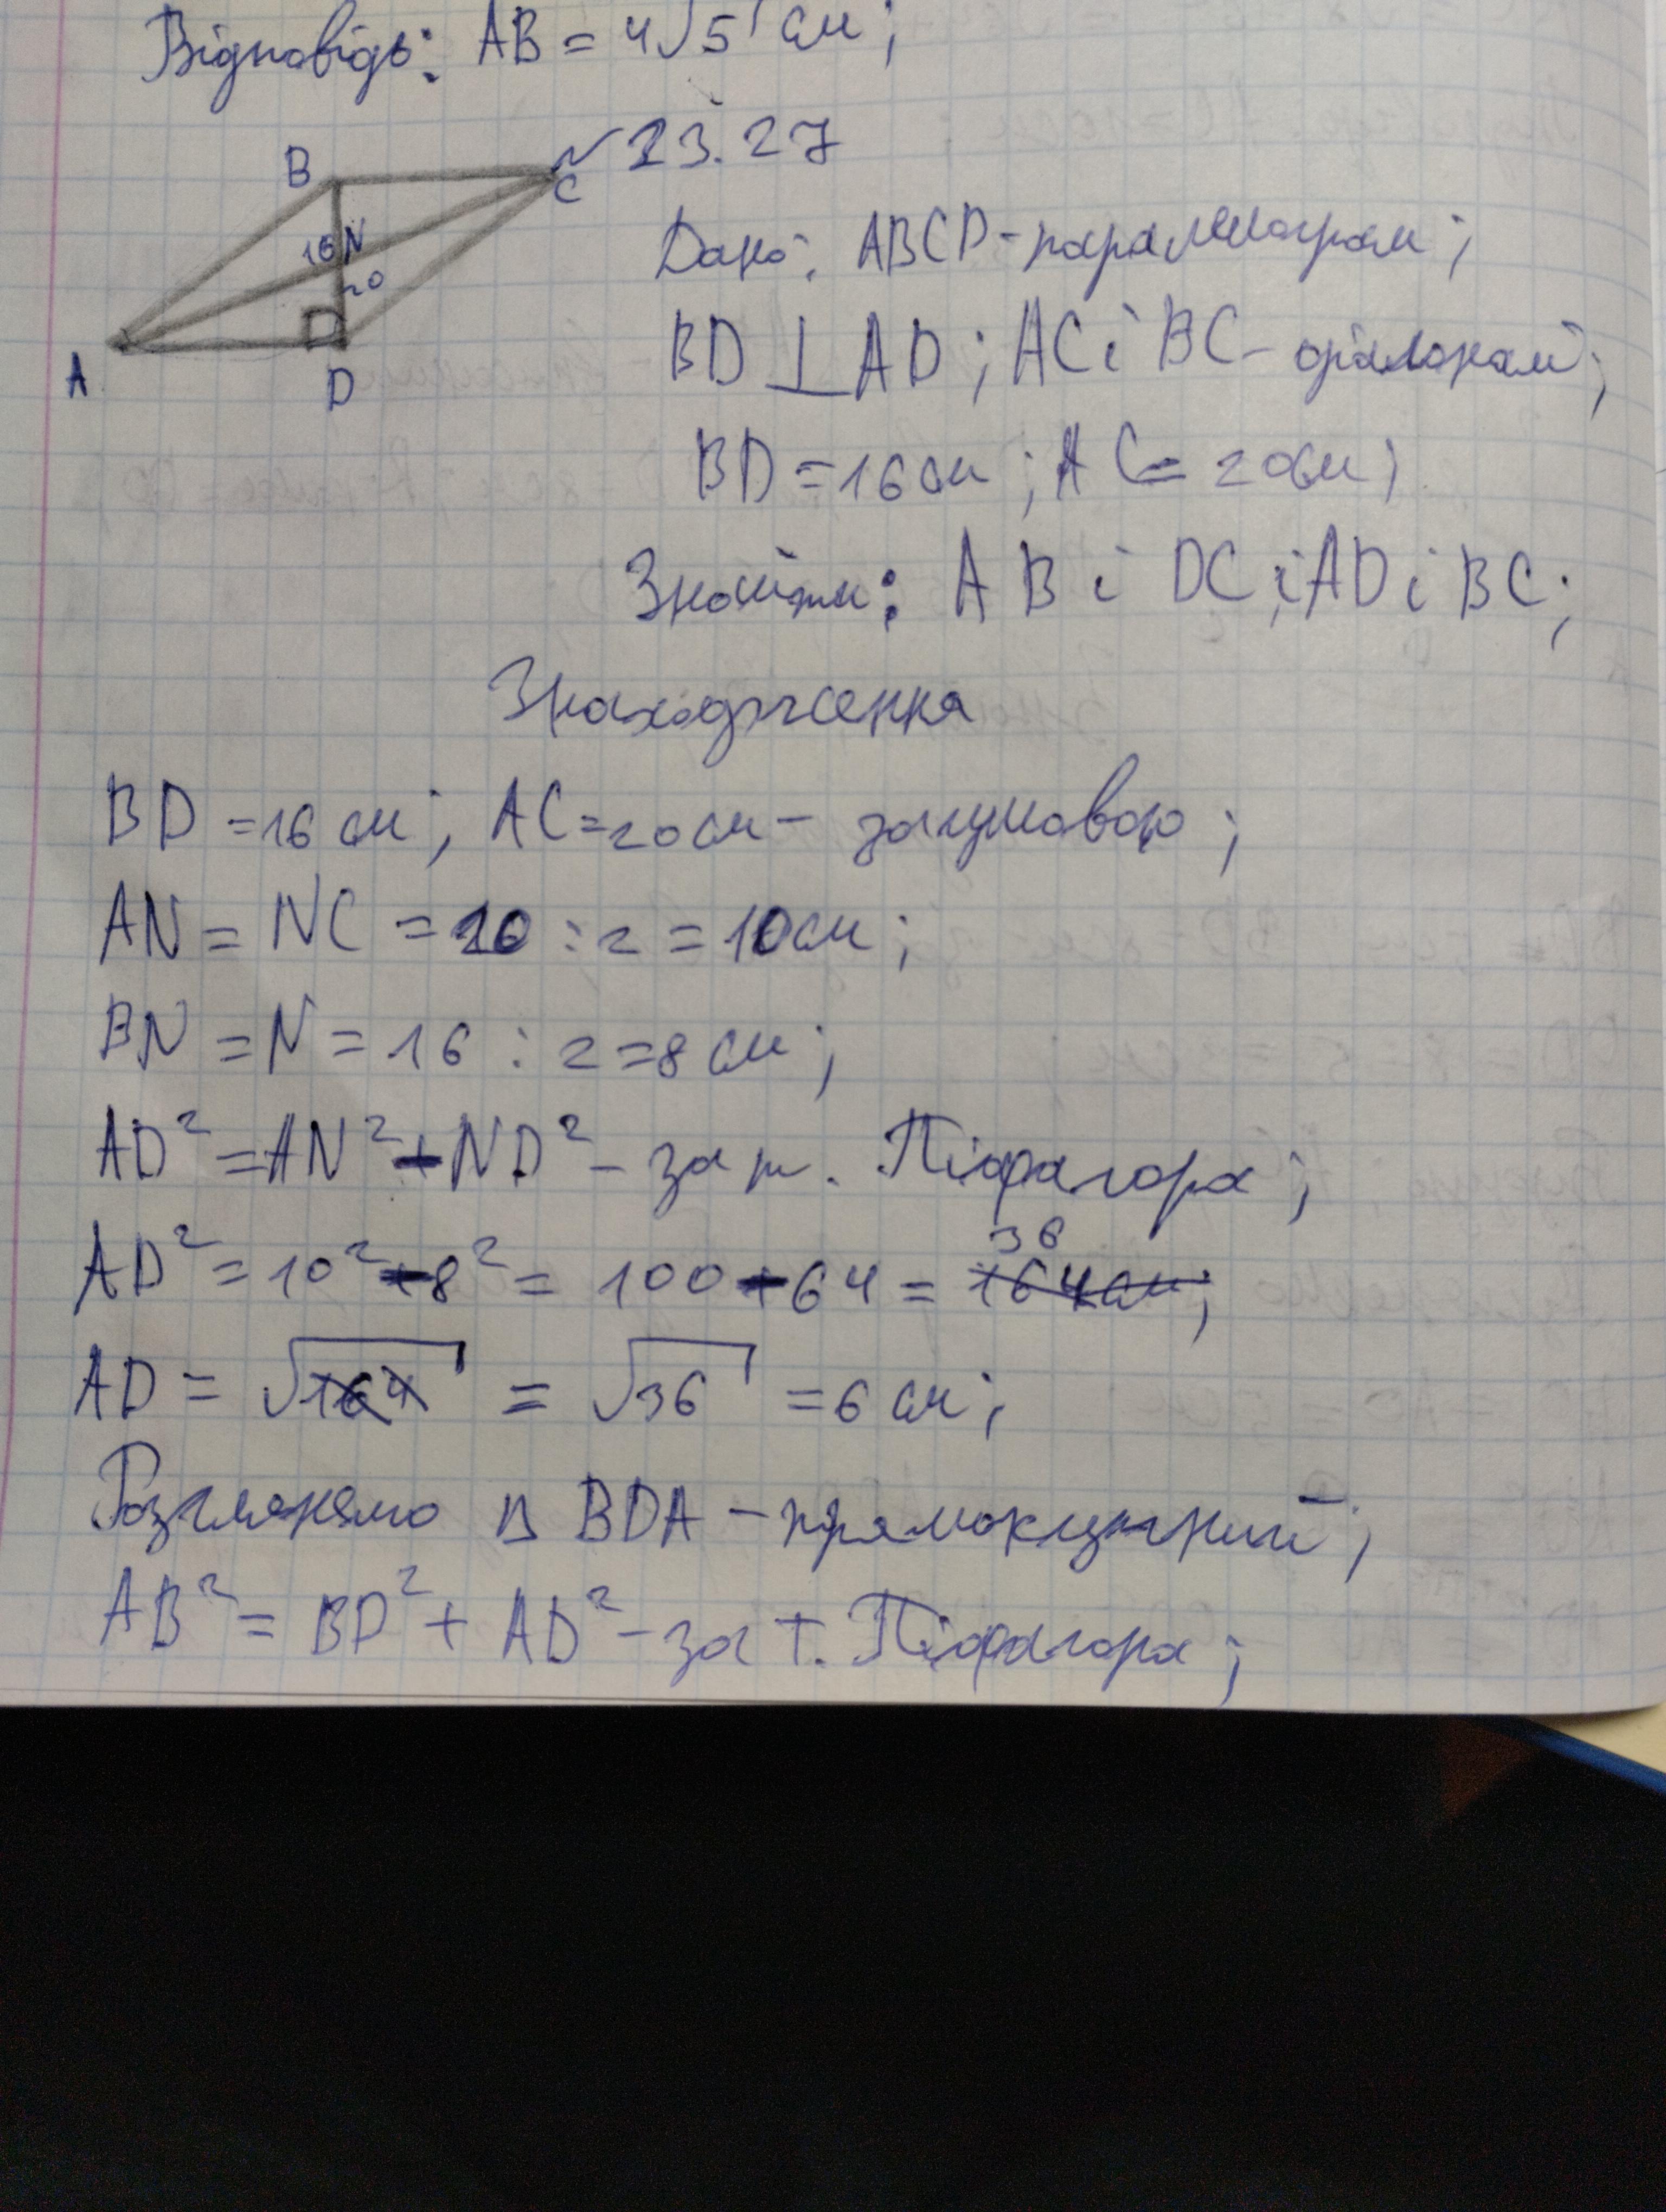 Відповідь: AB = 4√5 см;
№ 23.27
B
C
16 N
20
A
D
Дано: ABCD - паралелограм;
BD ⊥ AD; AC і BC - діагоналі;
BD = 16 см; AC = 20 см;
Знайти: AB і DC; і AD і BC;
Знаходження
BD = 16 см; AC = 20 см - за умовою;
AN = NC = 20 : 2 = 10 см;
BN = N = 16 : 2 = 8 см;
AD² = AN² - ND² - за т. Піфагора;
36
AD² = 10² - 8² = 100 - 64 = 164 см;
AD = √164 = √36 = 6 см;
Розглянемо ⊿ BDA - прямокутний;
AB² = BD² + AD² - за т. Піфагора;